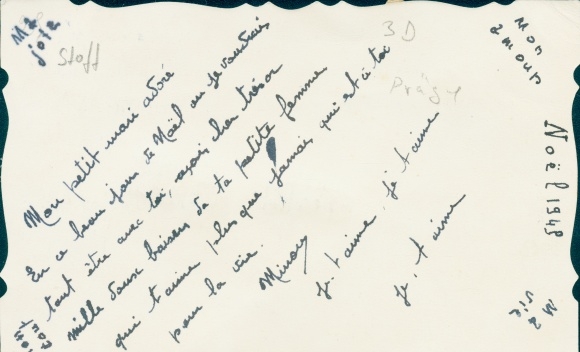 Ma
joie
Staff
3D
Mon
amour
Mon petit mari adoré
En ce beau jour de Noël où je voudrais
tant être avec toi, reçois cher trésor
mille doux baisers de ta petite femme
qui t'aime plus que jamais, qui est à toi
pour la vie.
Minou
Je t'aime, je t'aime
je, t'aime
Noël 1948
Ma
vie